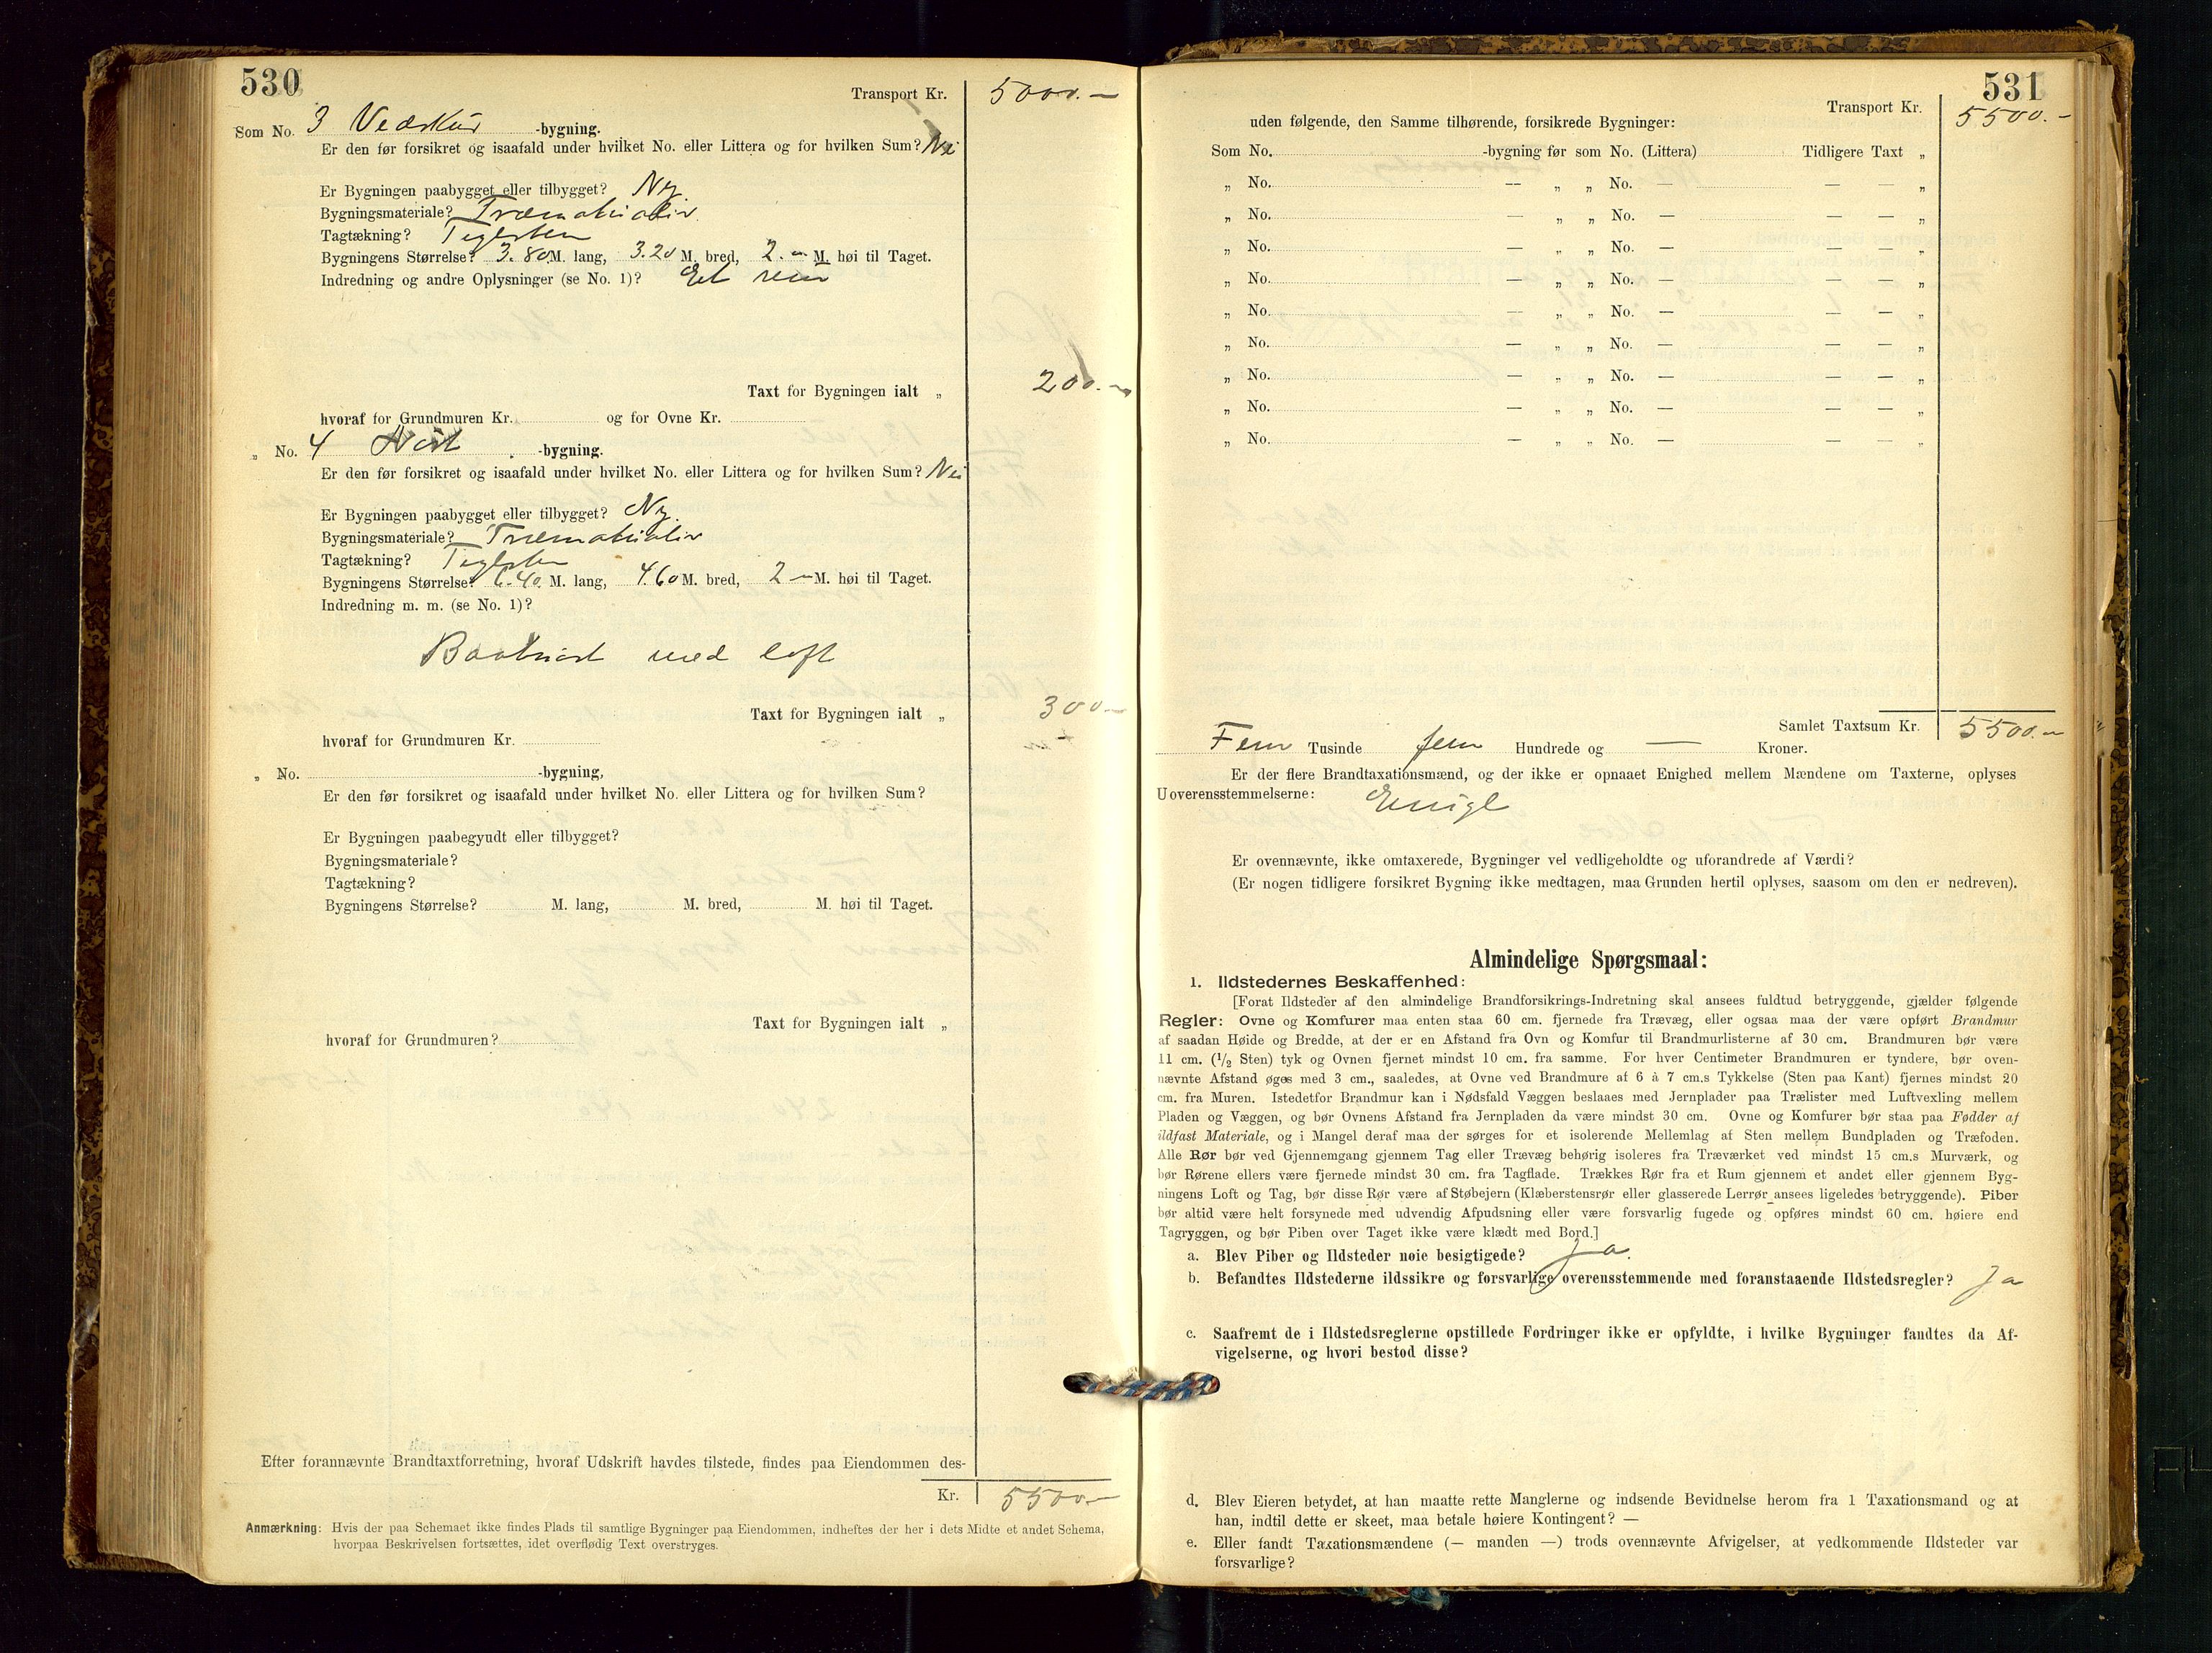 530
Transport Kr. 5000.—
Som No. 3 Vedskur -bygning.
Er den før forsikret og isaafald under hvilket No. eller Littera og for hvilken Sum? Nei
Er Bygningen paabygget eller tilbygget? Ny.
Bygningsmateriale? Træmatrialier
Tagtækning? Teglsten
Bygningens Størrelse? 3.80 M. lang, 3.20 M. bred, 2.— M. høi til Taget.
Indredning og andre Oplysninger (se No. 1)? Et rum
Taxt for Bygningen ialt „ 200.—
hvoraf for Grundmuren Kr. og for Ovne Kr.
„ No. 4 Nøst -bygning.
Er den før forsikret og isaafald under hvilket No. eller Littera og for hvilken Sum? Nei
Er Bygningen paabygget eller tilbygget? Ny.
Bygningsmateriale? Træmatrialier
Tagtækning? Teglsten
Bygningens Størrelse? 6.40 M. lang, 4.60 M. bred, 2— M. høi til Taget.
Indredning m. m. (se No. 1)?
Baatnøst med loft
Taxt for Bygningen ialt „ 300—
hvoraf for Grundmuren Kr.
„ No. -bygning,
Er den før forsikret og isaafald under hvilket No. eller Littera og for hvilken Sum?
Er Bygningen paabegyndt eller tilbygget?
Bygningsmateriale?
Tagtækning?
Bygningens Størrelse? M. lang, M. bred, M. høi til Taget.
Taxt for Bygningen ialt „
hvoraf for Grundmuren?
Efter forannævnte Brandtaxtforretning, hvoraf Udskrift havdes tilstede, findes paa Eiendommen des-
Kr. 5500—
Anmærkning: Hvis der paa Schemaet ikke findes Plads til samtlige Bygninger paa Eiendommen, indheftes der her i dets Midte et andet Schema,
hvorpaa Beskrivelsen fortsættes, idet overflødig Text overstryges.
531
Transport Kr. 5500.—
uden følgende, den Samme tilhørende, forsikrede Bygninger:
Som No. -bygning før som No. (Littera) Tidligere Taxt „
„ No. — „ „ No. — — — „
„ No. — „ „ No. — — — „
„ No. — „ „ No. — — — „
„ No. — „ „ No. — — — „
„ No. — „ „ No. — — — „
„ No. — „ „ No. — — — „
„ No. — „ „ No. — — — „
„ No. — „ „ No. — — — „
„ No. — „ „ No. — — — „
Samlet Taxtsum Kr. 5500.—
Fem Tusinde fem Hundrede og — Kroner.
Er der flere Brandtaxationsmænd, og der ikke er opnaaet Enighed mellem Mændene om Taxterne, oplyses
Uoverensstemmelserne: Enige
Er ovennævnte, ikke omtaxerede, Bygninger vel vedligeholdte og uforandrede af Værdi?
(Er nogen tidligere forsikret Bygning ikke medtagen, maa Grunden hertil oplyses, saasom om den er nedreven).
Almindelige Spørgsmaal:
1. Ildstedernes Beskaffenhed:
[Forat Ildsteder af den almindelige Brandforsikrings-Indretning skal ansees fuldtud betryggende, gjælder følgende
Regler: Ovne og Komfurer maa enten staa 60 cm. fjernede fra Trævæg, eller ogsaa maa der være opført Brandmur
af saadan Høide og Bredde, at der er en Afstand fra Ovn og Komfur til Brandmurlisterne af 30 cm. Brandmuren bør være
11 cm. (1/2 Sten) tyk og Ovnen fjernet mindst 10 cm. fra samme. For hver Centimeter Brandmuren er tyndere, bør oven-
nævnte Afstand øges med 3 cm., saaledes, at Ovne ved Brandmure af 6 à 7 cm.s Tykkelse (Sten paa Kant) fjernes mindst 20
cm. fra Muren. Istedetfor Brandmur kan i Nødsfald Væggen beslaaes med Jernplader paa Trælister med Luftvexling mellem
Pladen og Væggen, og bør Ovnens Afstand fra Jernpladen da være mindst 30 cm. Ovne og Komfurer bør staa paa Fødder af
ildfast Materiale, og i Mangel deraf maa der sørges for et isolerende Mellemlag af Sten mellem Bundpladen og Træfoden.
Alle Rør bør ved Gjennemgang gjennem Tag eller Trævæg behørig isoleres fra Træværket ved mindst 15 cm.s Murværk, og
bør Rørene ellers være fjernede mindst 30 cm. fra Tagflade. Trækkes Rør fra et Rum gjennem et andet eller gjennem Byg-
ningens Loft og Tag, bør disse Rør være af Støbejern (Klæberstensrør eller glasserede Lerrør ansees ligeledes betryggende). Piber
bør altid være helt forsynede med udvendig Afpudsning eller være forsvarlig fugede og opføres mindst 60 cm. høiere end
Tagryggen, og bør Piben over Taget ikke være klædt med Bord.]
a. Blev Piber og Ildsteder nøie besigtigede? Ja.
b. Befandtes Ildstederne ildssikre og forsvarlige overensstemmende med foranstaaende Ildstedsregler? Ja
c. Saafremt de i Ildstedsreglerne opstillede Fordringer ikke er opfyldte, i hvilke Bygninger fandtes da Af-
vigelserne, og hvori bestod disse?
d. Blev Eieren betydet, at han maatte rette Manglerne og indsende Bevidnelse herom fra 1 Taxationsmand og at
han, indtil dette er skeet, maa betale høiere Kontingent? —
e. Eller fandt Taxationsmændene (— manden —) trods ovennævnte Afvigelser, at vedkommende Ildsteder var
forsvarlige?